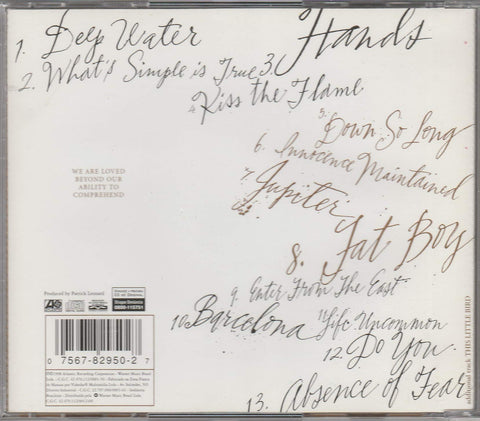 1. Deep Water
2. What's Simple is True
3. Hands
4. Kiss the Flame
5. Down So Long
6. Innocence Maintained
7. Jupiter
8. Fat Boy
9. Enter From The East
10. Barcelona
11. Life Uncommon
12. Do You
13. Absence of Fear
WE ARE LOVED
BEYOND OUR
ABILITY TO
COMPREHEND
Produced by Patrick Leonard
0 7567-82950-2 7
additional track THIS LITTLE BIRD